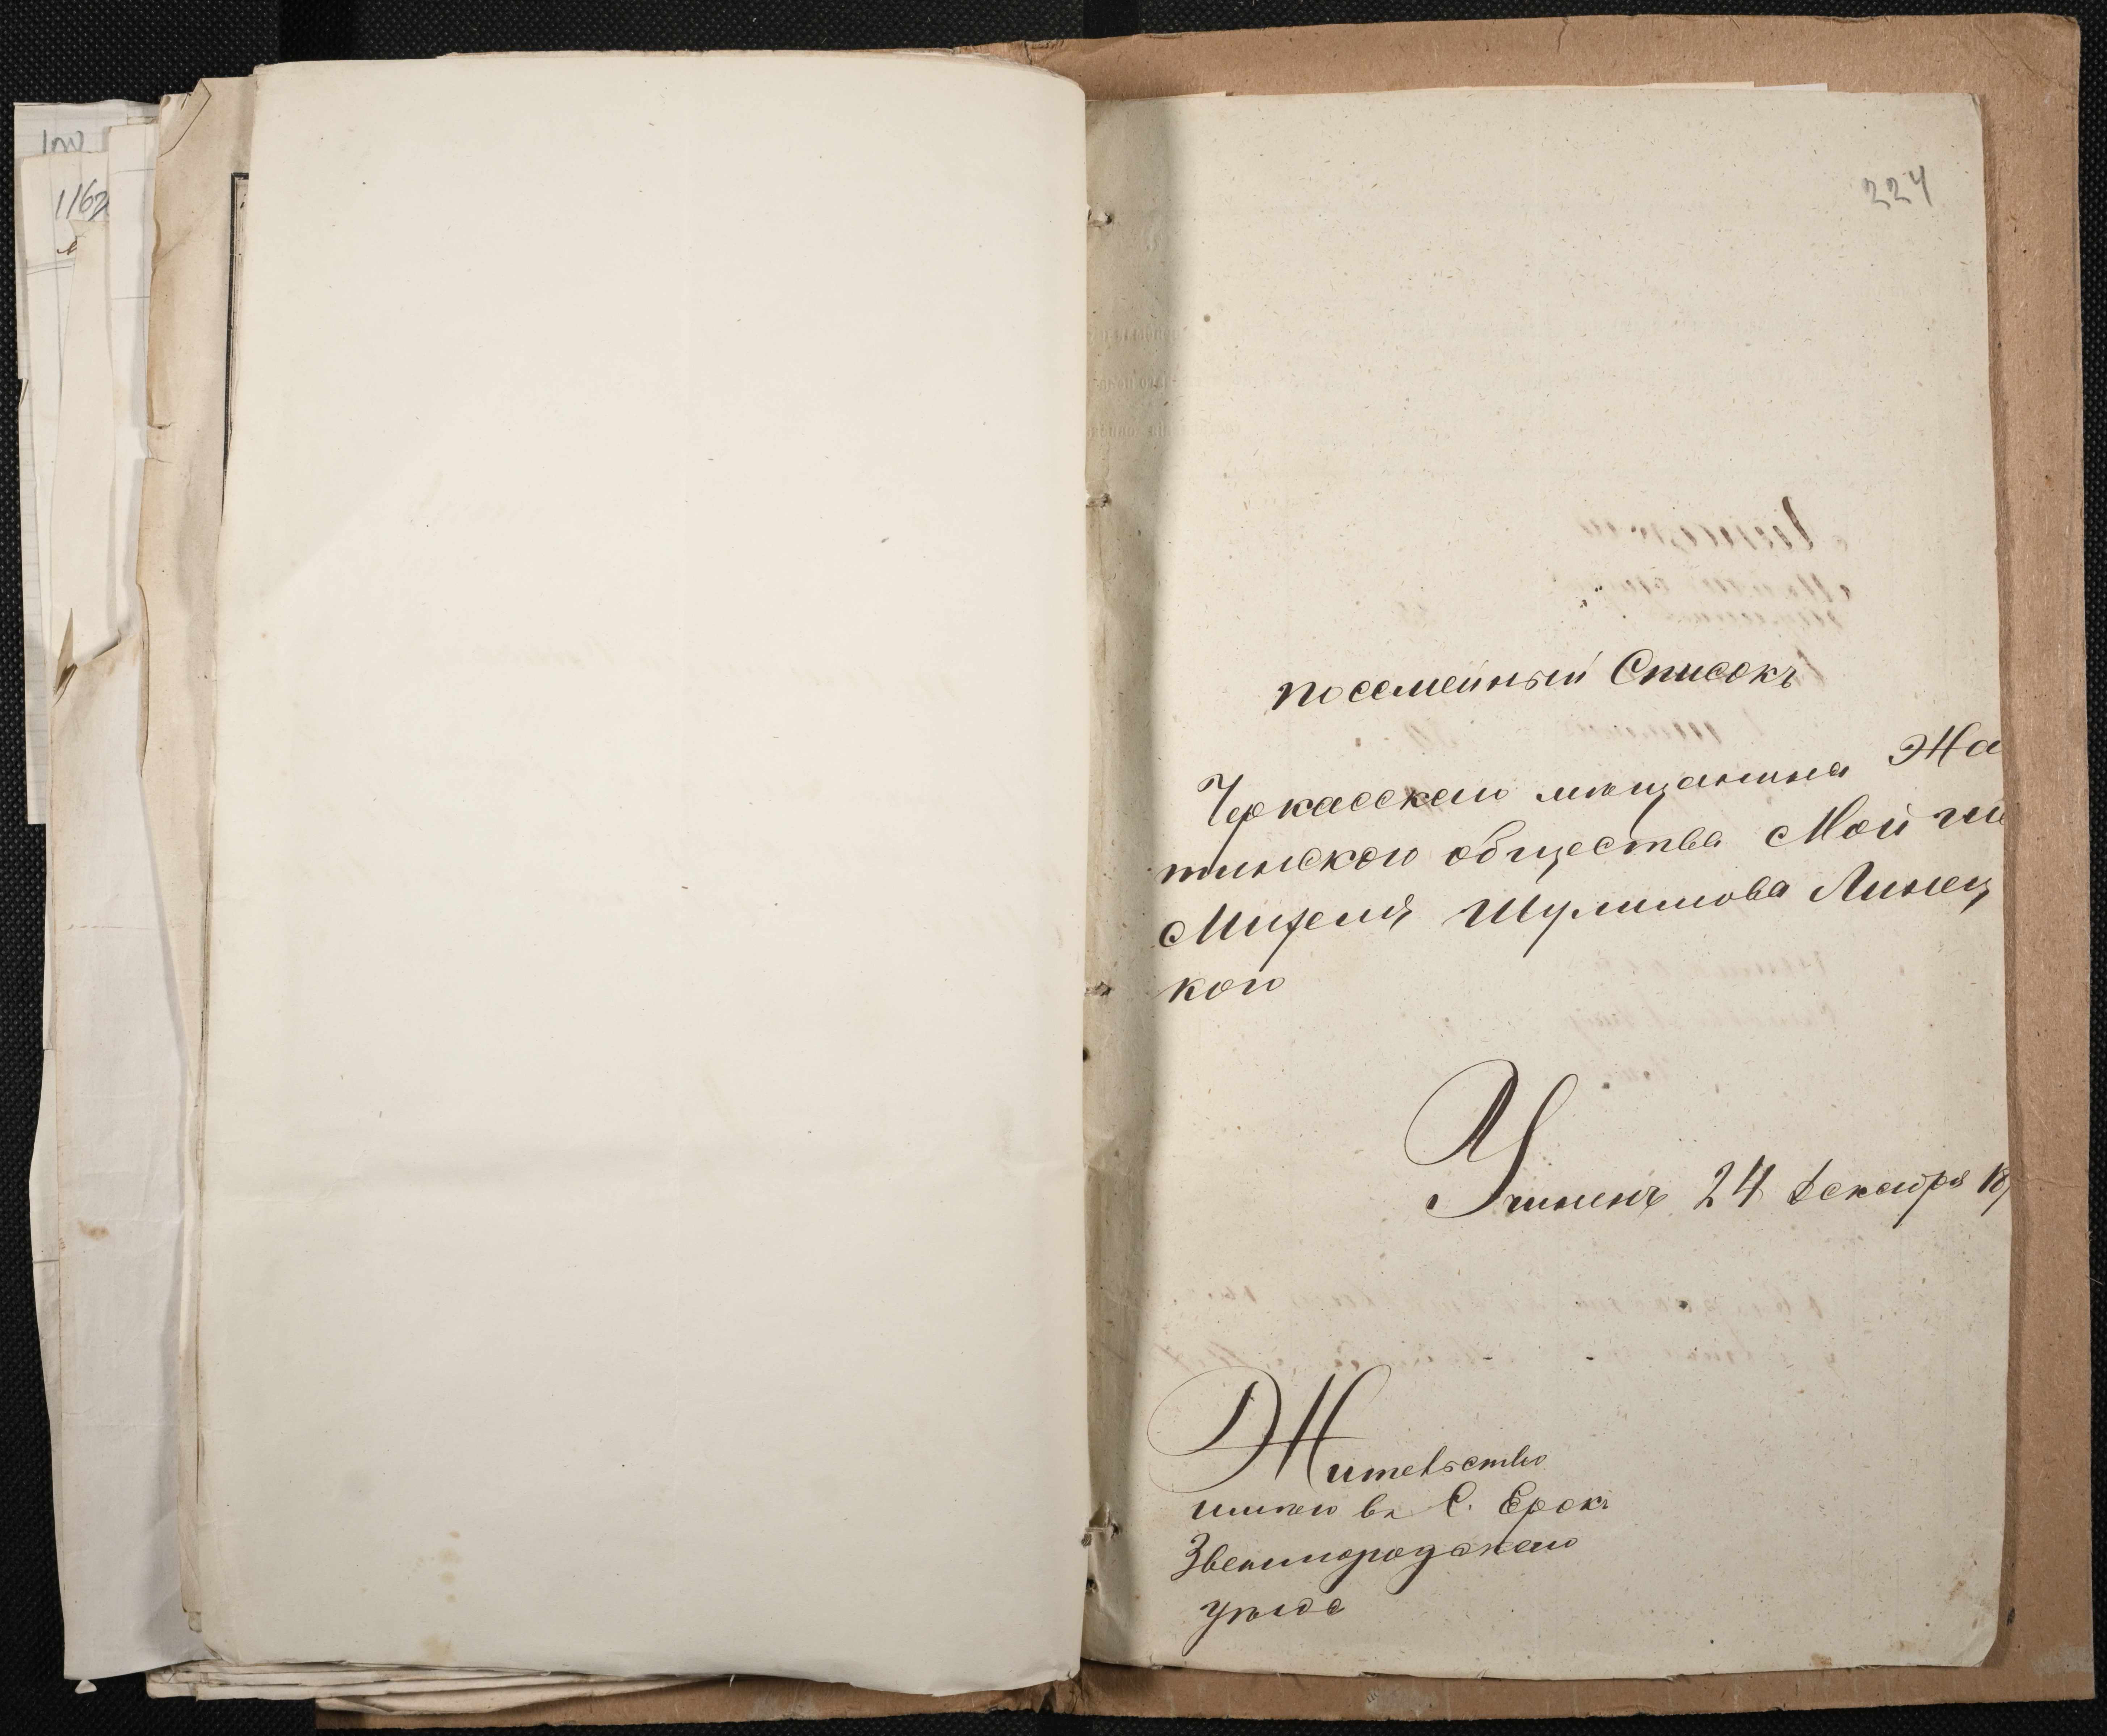 1162
224
посемейный Списокъ
Черкаскаго мѣщанина Ма
тинского общества Мой
Шулимова Линец
кого
Учиненъ 24 декабря 18
Жительство
имѣю въ С. Ерокъ
Звенигородскаго
уѣзда